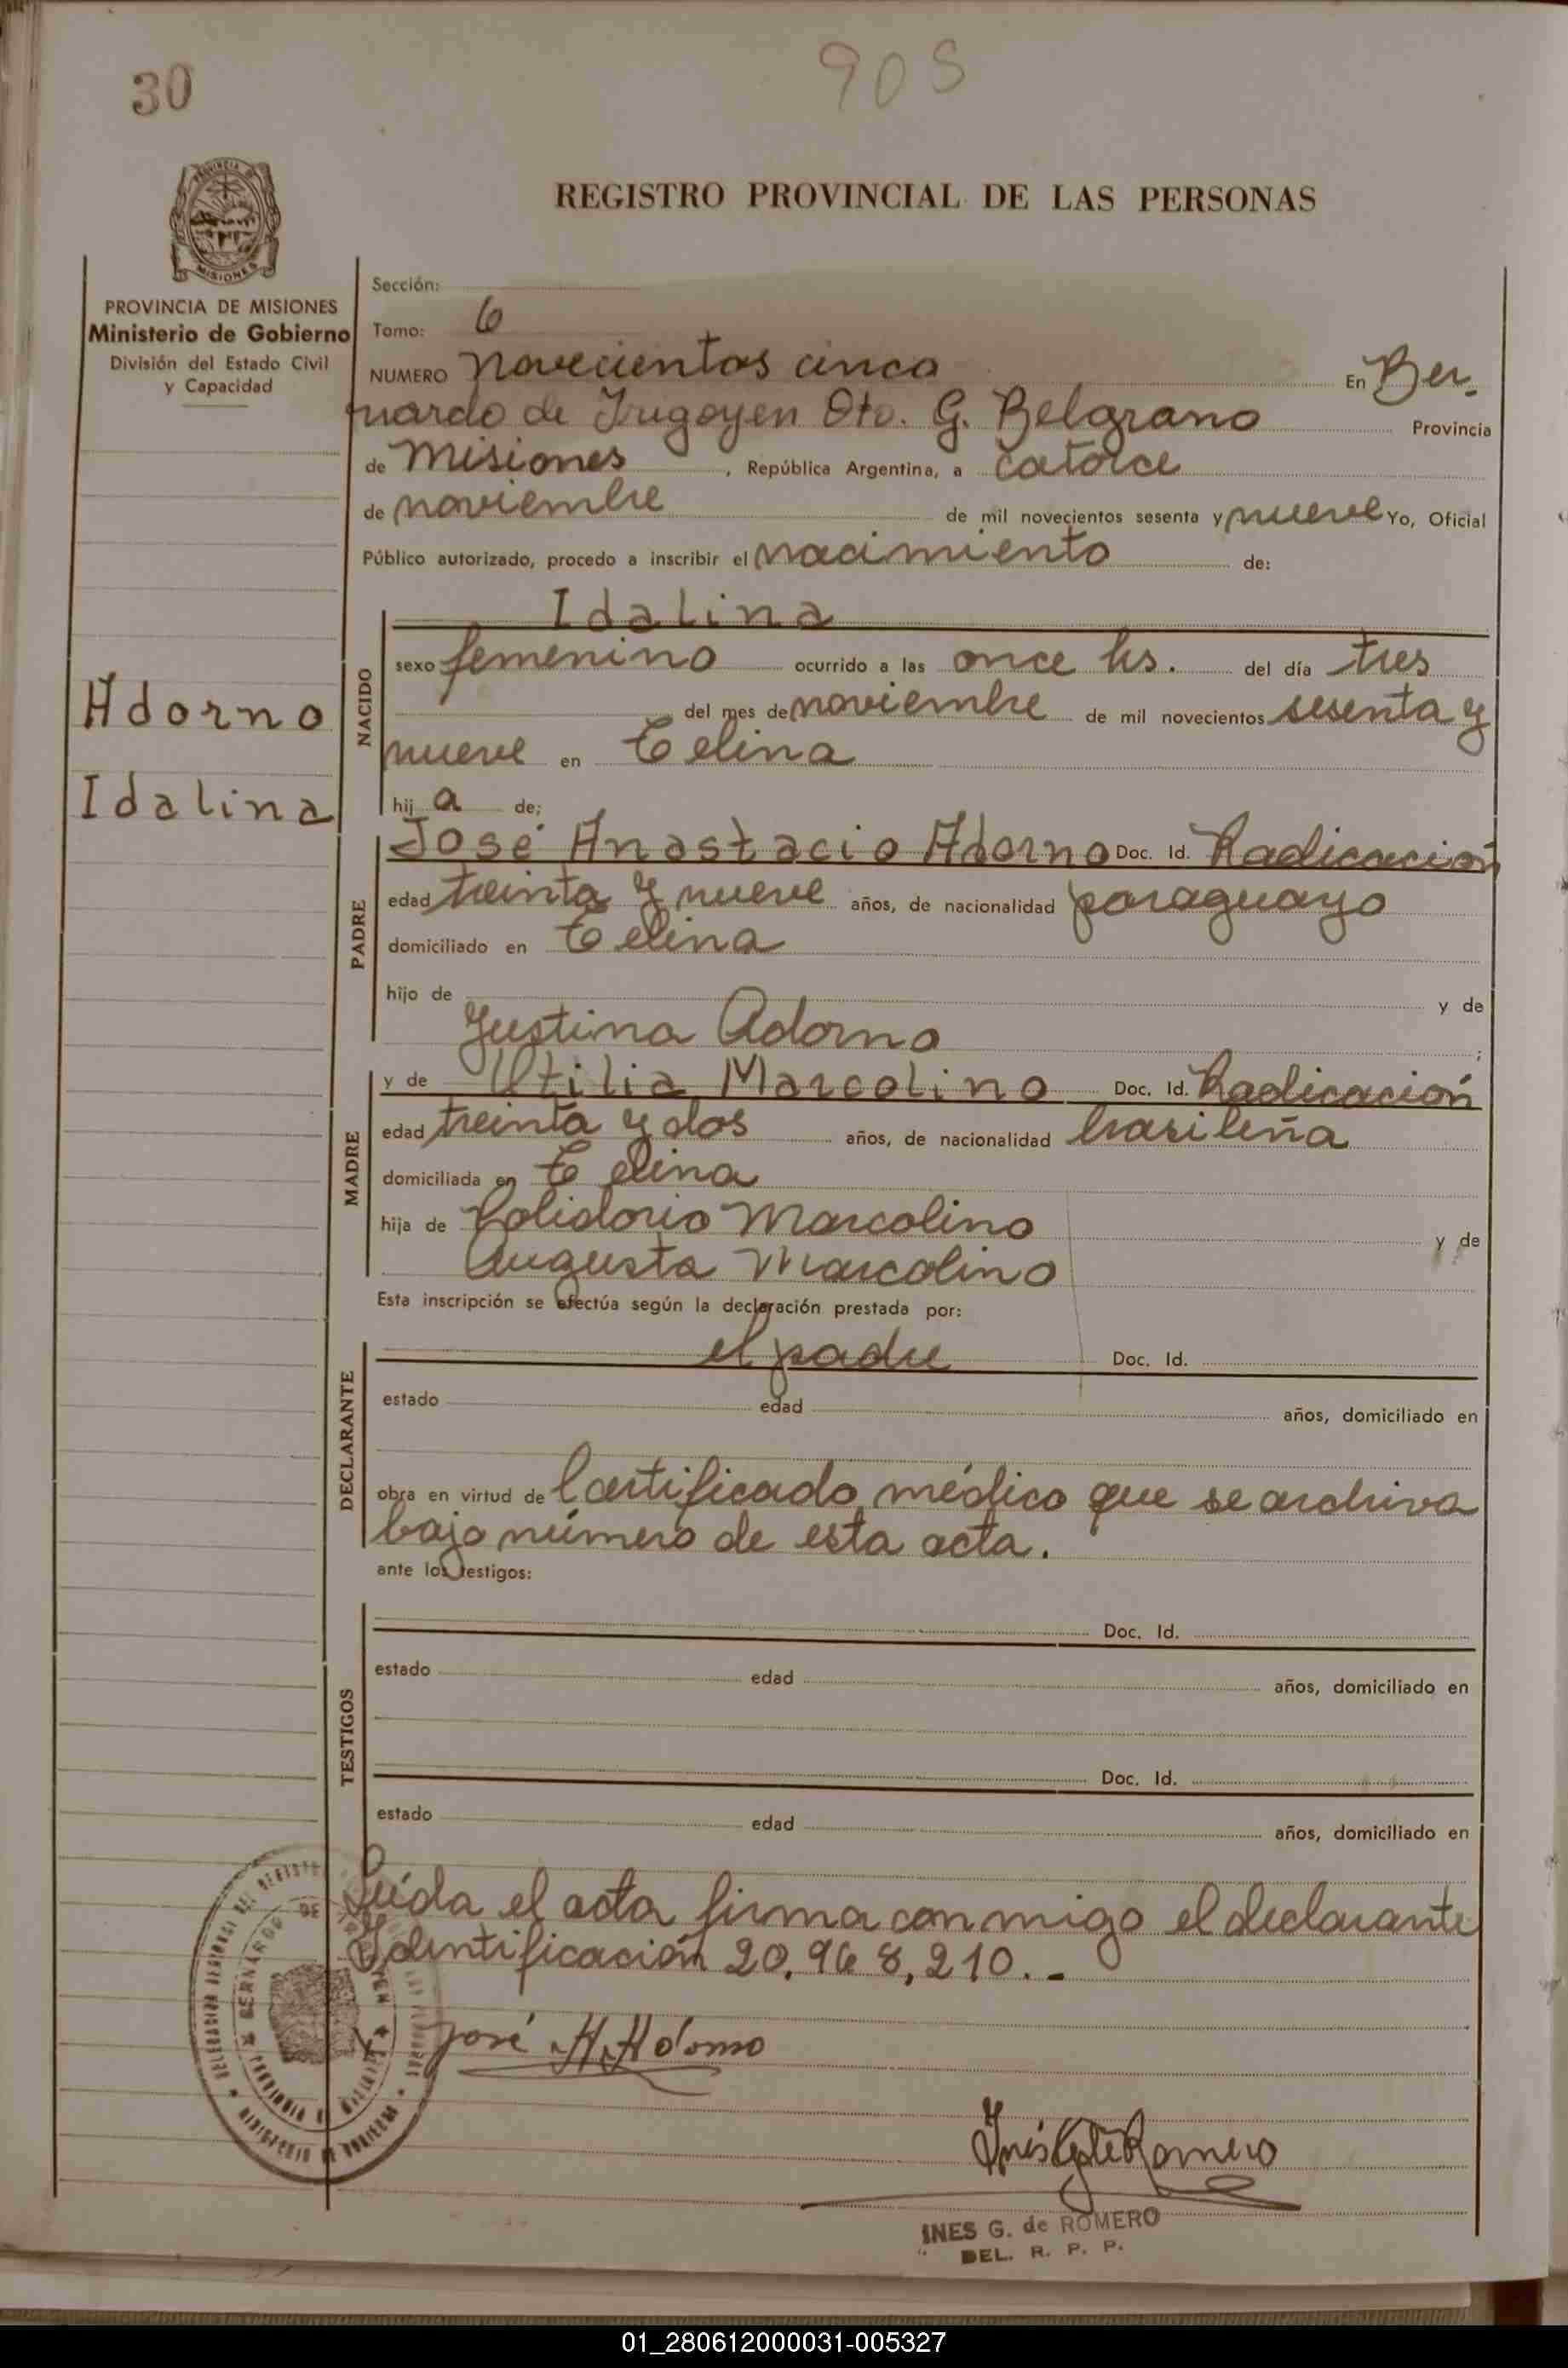 30
905
REGISTRO PROVINCIAL DE LAS PERSONAS
PROVINCIA DE MISIONES
Ministerio de Gobierno
División del Estado Civil
y Capacidad
Sección:
Tomo: 6
NUMERO novecientos cinco En Ber-
nardo de Irigoyen Dto. G. Belgrano Provincia
de Misiones, República Argentina, a catorce
de noviembre de mil novecientos sesenta y nueve Yo, Oficial
Público autorizado, procedo a inscribir el nacimiento de:
Idalina
NACIDO
sexo femenino ocurrido a las once hs. del día tres
del mes de noviembre de mil novecientos sesenta y
nueve en Celina
hij a de;
Adorno
Idalina
PADRE
José Anastacio Adorno Doc. Id. Radicación
edad treinta y nueve años, de nacionalidad paraguayo
domiciliado en Celina
hijo de y de
Justina Adorno ;
MADRE
y de Utilia Marcolino Doc. Id. Radicación
edad treinta y dos años, de nacionalidad brasileña
domiciliada en Celina
hija de Polidorio Marcolino y de
Augusta Marcolino
Esta inscripción se efectúa según la declaración prestada por:
DECLARANTE
el padre Doc. Id.
estado edad años, domiciliado en
obra en virtud de Certificado médico que se archiva
bajo número de esta acta.
ante los testigos:
TESTIGOS
Doc. Id.
estado edad años, domiciliado en
Doc. Id.
estado edad años, domiciliado en
Leída el acta firma conmigo el declarante
Identificación 20.968,210.-
José A. Adorno
Inés G. de Romero
INES G. de ROMERO
DEL. R. P. P.
01_280612000031-005327